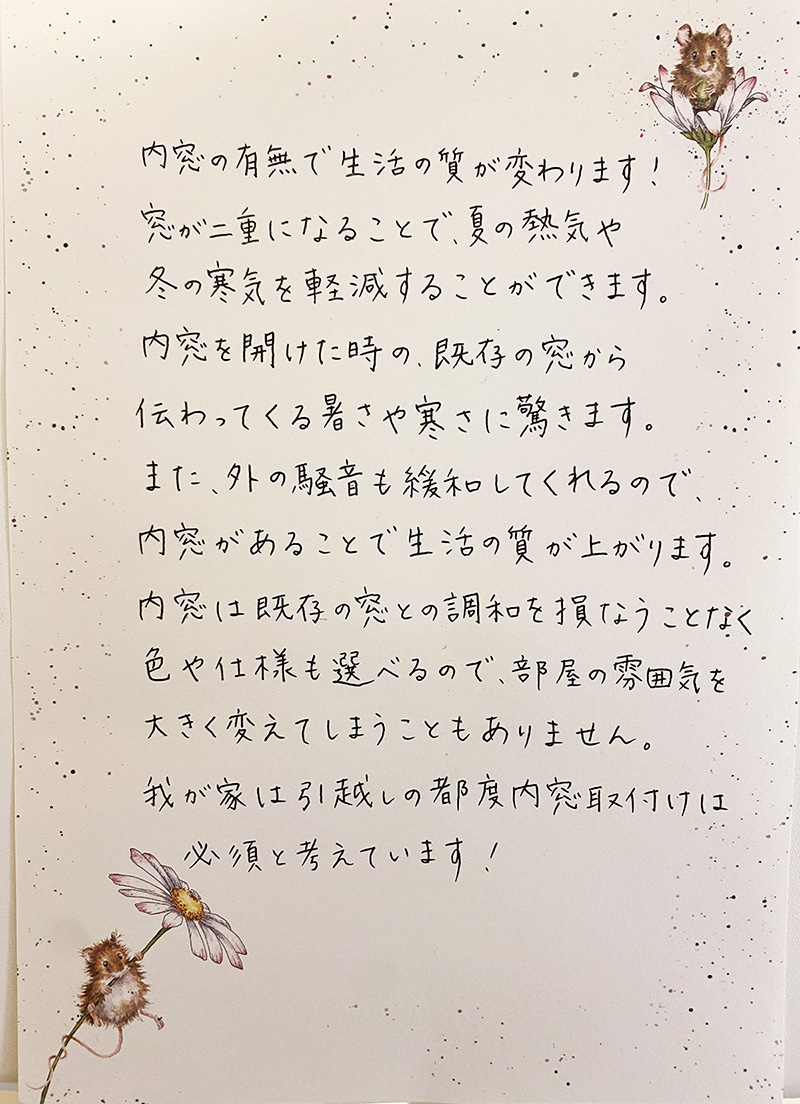 内窓の有無で生活の質が変わります！
窓が二重になることで、夏の熱気や
冬の寒気を軽減することができます。
内窓を開けた時の、既存の窓から
伝わってくる暑さや寒さに驚きます。
また、外の騒音も緩和してくれるので、
内窓があることで生活の質が上がります。
内窓は既存の窓との調和を損なうことなく
色や仕様も選べるので、部屋の雰囲気を
大きく変えてしまうこともありません。
我が家は引越しの都度内窓取付けは
必須と考えています！